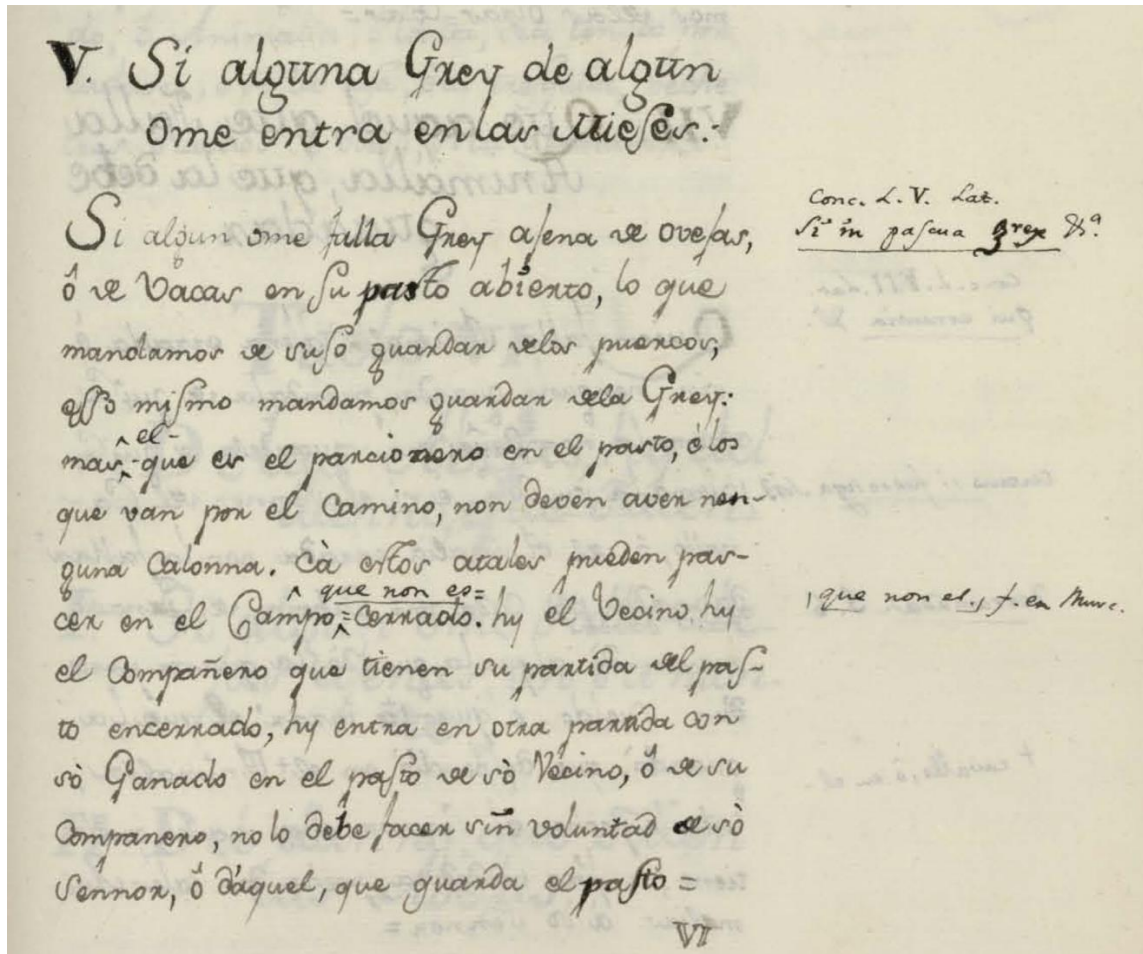 V. Si alguna Grey de algun
ome entra en las Mieses:-
Si algun ome falla Grey ajena de ovejas,
ô de Vacas en su pasto abierto, lo que
mandamos de suso guardar delos puercos,
esso mismo mandamos guardar dela Grey:
el-
mas,-que es el parcionero en el pasto, é los
que van por el Camino, non deven aver nen-
guna Calonna. Cà estos atales pueden pas-
que non es=
cer en el Campo=Cerrado. hy el Vecino hy
el Compañero que tienen su partida del pas-
to encerrado, hy entra en otra partida con
sò Ganado en el pasto de sò Vecino, ô de su
Companero, no lo debe facer sin voluntad de sò
Sennor, ô dáquel, que guarda el pasto=
VI
Conc. L. V. Lat.
Si in pascua grex &a.
, que non es, f. en Murc.